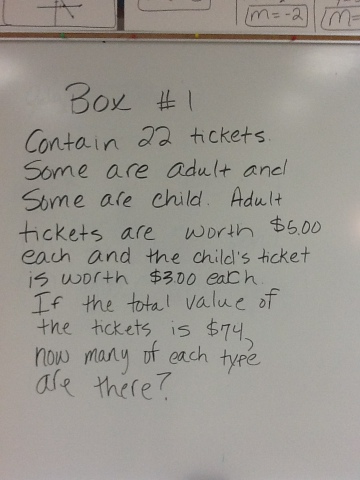 m=-2
m=
Box #1
Contain 22 tickets.
Some are adult and
Some are child. Adult
tickets are worth $5.00
each and the child's ticket
is worth $3.00 each.
If the total value of
the tickets is $74,
how many of each type
are there?